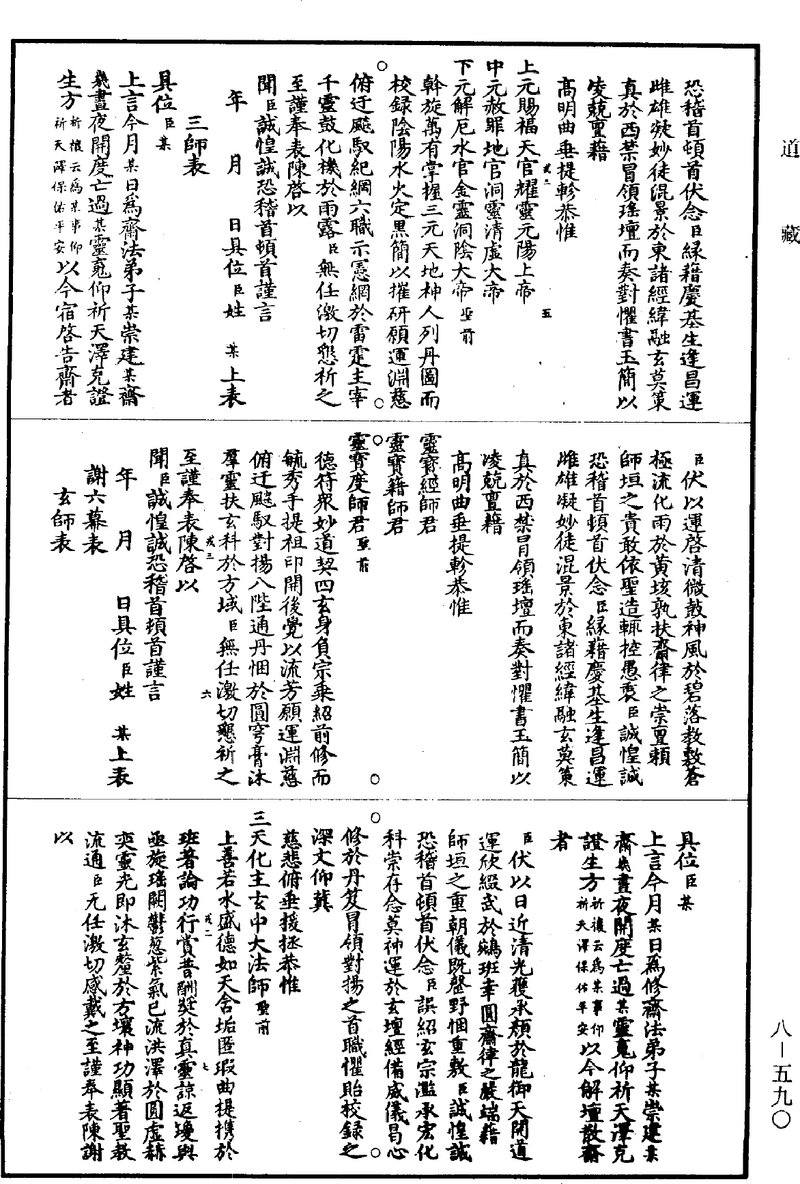 道藏
恐稽首頓首伏念臣緣藉慶基生逢昌運
雌雄凝妙徒混景於東諸經緯融玄莫策
真於西禁冒領瑤壇而奏對懼書玉簡以
凌兢亶藉
高明曲垂提軫恭惟
上元賜福天官耀靈元陽上帝
中元赦罪地官洞靈清虛大帝
下元解厄水官金靈洞陰大帝聖前
斡旋萬有掌握三元天地神人列丹圖而
校録陰陽水火定黑簡以摧研願運淵慈
俯迂飈馭紀綱六職示憲網於雷霆主宰
千靈鼓化機於雨露臣無任激切懇祈之
至謹奉表陳啓以
聞臣誠惶誠恐稽首頓首謹言
年月日具位臣姓某上表
三師表
具位臣某
上言今月某日為齋法弟子某崇建某齋
幾晝夜開度亡過某靈寬仰祈天澤克證
生方祈禳云為某事仰祈天澤保佑平安以今宿啓告齋者
臣伏以運啓清微鼓神風於碧落教敷蒼
極流化雨於黄垓孰扶齋律之崇亶頼
師垣之貴敢依聖造輒控愚衷臣誠惶誠
恐稽首頓首伏念臣緣藉慶基生逢昌運
雌雄凝妙徒混景於東諸經緯融玄莫策
真於西禁冒領瑤壇而奏對懼書玉簡以
凌兢亶藉
高明曲垂提軫恭惟
靈寶經師君
靈寶籍師君
靈寶度師君聖前
德符衆妙道契四玄身負宗乗紹前修而
毓秀手提祖印開後覺以流芳願運淵慈
俯迂飈馭對揚八陛通丹悃於圓穹膏沐
羣靈扶玄科於方域臣無任激切懇祈之
至謹奉表陳啓以
聞臣誠惶誠恐稽首頓首謹言
年月日具位臣姓某上表
謝六幕表
玄師表
具位臣某
上言今月某日為修齋法弟子某崇建某
齋幾晝夜開度亡過某靈寬仰祈天澤克
證生方祈禳云為某事仰祈天澤保佑平安以今解壇散齋
者
臣伏以日近清光獲承顏於龍御天開道
運欣綴武於鵷班幸圓齋律之嚴端藉
師垣之重朝儀既罄野悃重敷臣誠惶誠
恐稽首頓首伏念臣誤紹玄宗濫承宏化
科崇存念莫神運於玄壇經備威儀曷心
修於丹笈冒領對揚之首職懼貽校録之
深文仰冀
慈悲俯垂援拯恭惟
三天化主玄中大法師聖前
上善若水盛德如天含垢匿瑕曲提携於
班著論功行賞普酬奬於真靈諒返璦與
亟旋瑤闕鬱葱紫氣已流洪澤於圓虛赫
奕靈光即沐玄釐於方壤神功顯著聖教
流通臣无任激切感戴之至謹奉表陳謝
以
八－五九〇